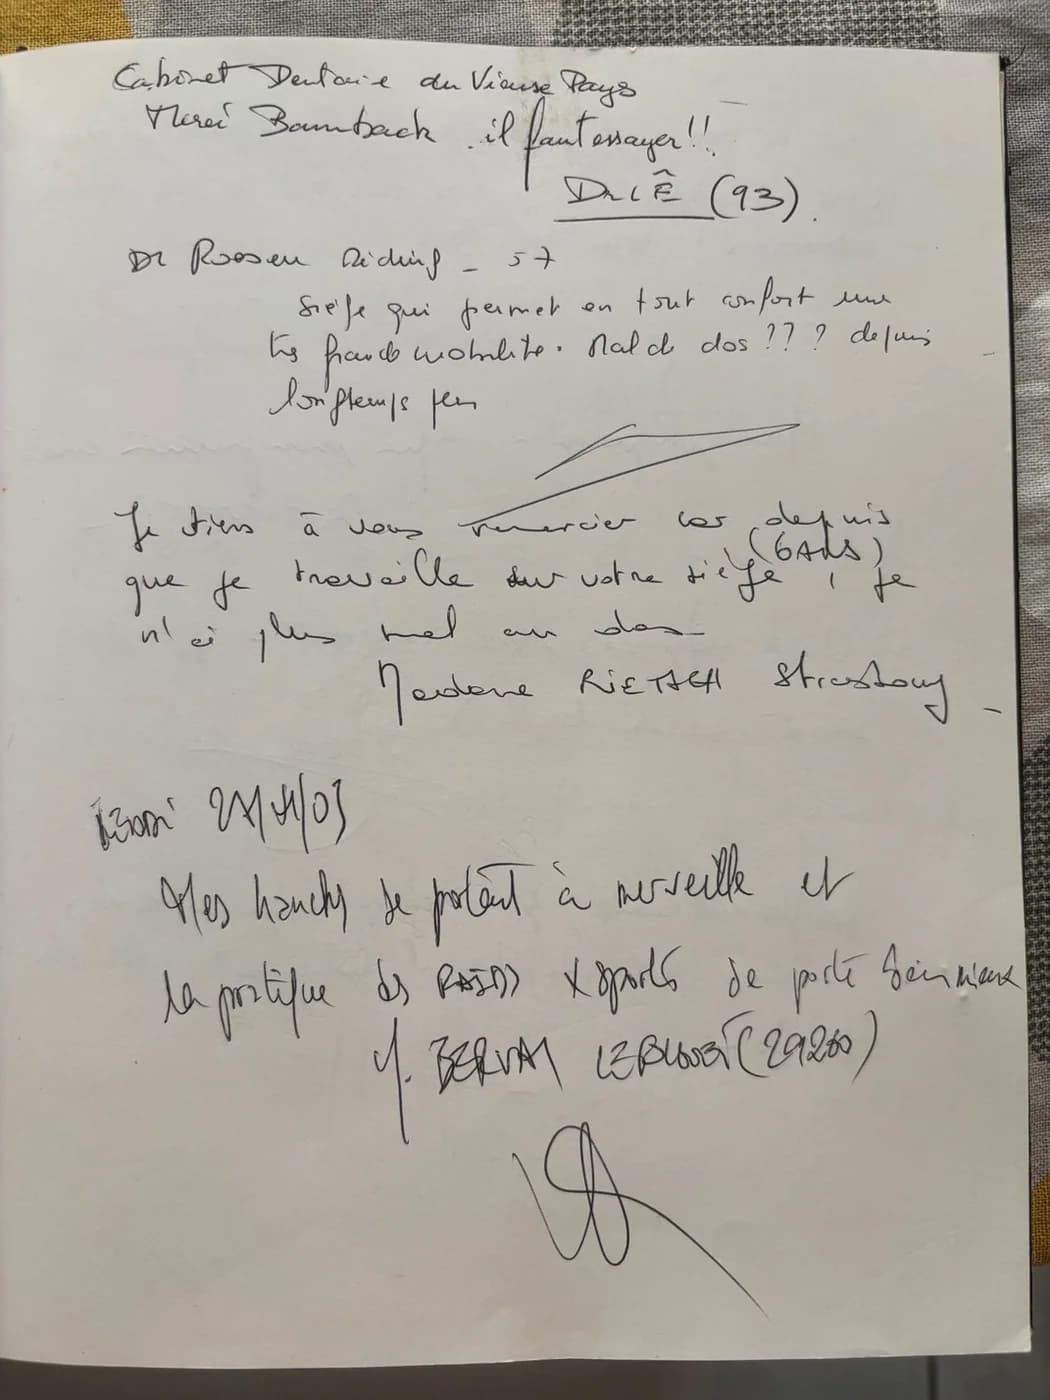 Cabinet Dentaire du Vieux Pays
Merci Bambach il faut essayer!!
Dr LÊ (93).
Dr Roesen - 57
Siège qui permet en tout confort une
très grande mobilité. Mal de dos ??? depuis
longtemps
Je tiens à vous remercier car depuis
(6 ANS)
que je travaille sur votre siège, je
n'ai plus mal au dos
Madame RIETSCH Strasbourg
27/11/03
Mes hanches se portent à merveille et
la pratique des RAIDS X sports se porte bien mieux
(29260)